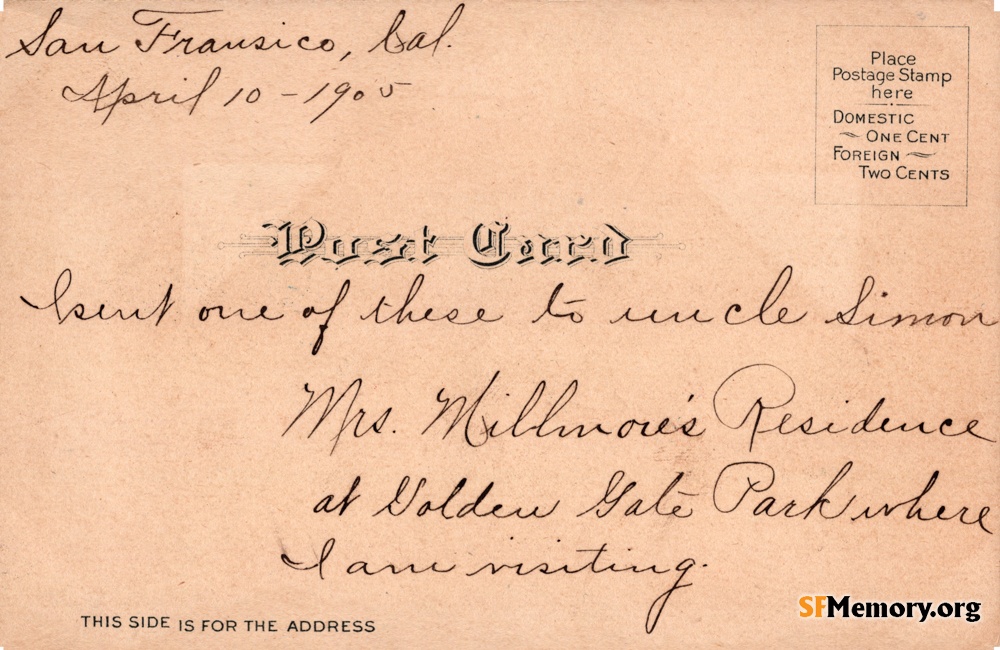 San Fransico, Cal.
April 10 - 1905
Place
Postage Stamp
here
DOMESTIC
ONE CENT
FOREIGN
TWO CENTS
Post Card
I sent one of these to uncle Simon
Mrs. Millmore's Residence
at Golden Gate Park where
I am visiting.
THIS SIDE IS FOR THE ADDRESS
SFMemory.org